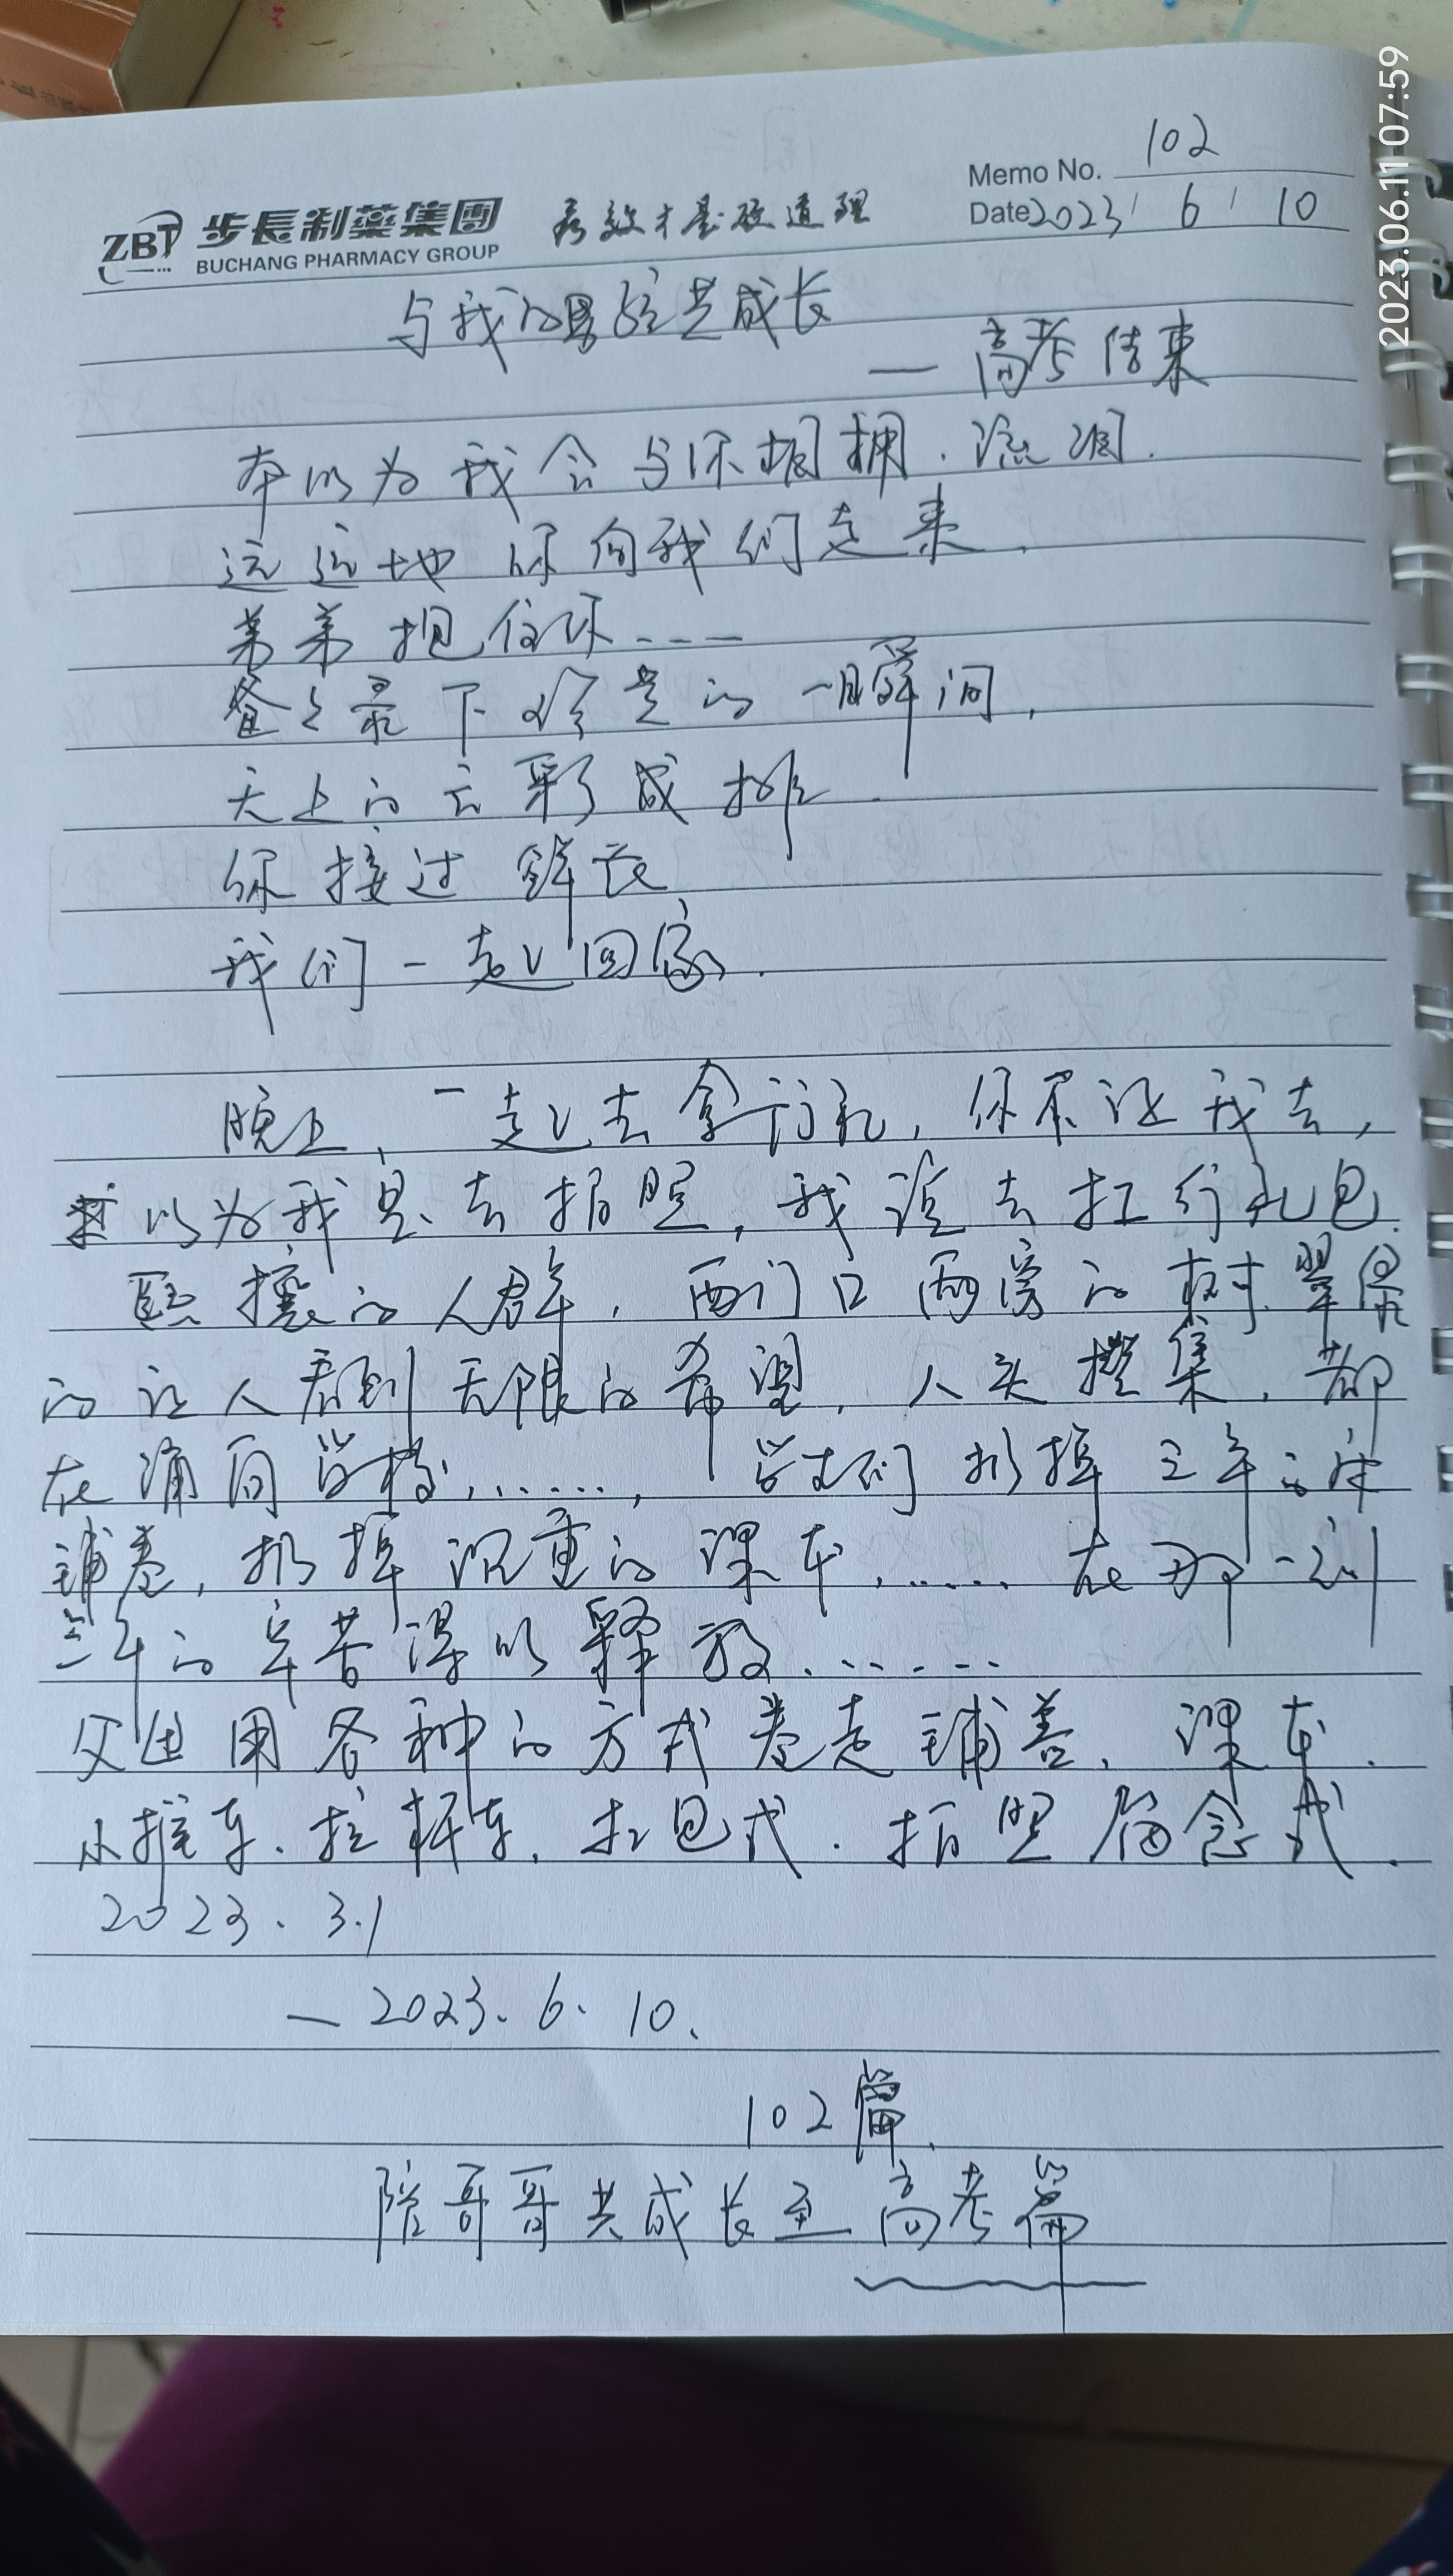 2023.06.11 07:59
Memo No. 102
ZBT 步長制藥集團
BUCHANG PHARMACY GROUP
有效才是硬道理
Date 2023 / 6 / 10
与我的男孩共成长
— 高考结束
本以为我会与你相拥、流泪.
远远地你向我们走来.
弟弟抱住你---
爸爸录下珍贵的一瞬间,
天上的云彩成排.
你接过鲜花
我们一起回家.
晚上、一起去拿行礼, 你不让我去,
以为我是去拍照, 我说去扛行礼包.
熙攘的人群, 西门口两旁的树翠绿
的让人看到无限的希望, 人头攒集, 都
在涌向学校......, 学子们扔掉三年的
辅卷, 扔掉沉重的课本, ...... 在那一刻
三年的辛苦得以释放......
父母用各种的方式卷走辅卷、课本.
小推车、拉杆车, 扛包式. 拍照留念式.
2023. 3.1
— 2023. 6. 10.
102篇.
陪哥哥共成长至高考篇